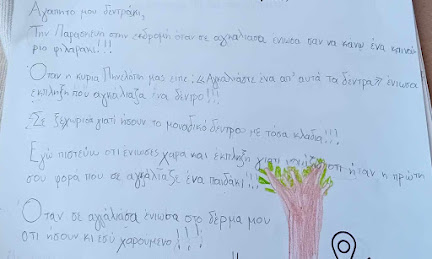 Αγαπητό μου δεντράκι,
Την Παρασκευή στην εκδρομή όταν σε αγκάλιασα ένιωσα σαν να κάνω ένα καινού
ριο φιλαράκι!!!
Όταν η κυρία Πηνελόπη μας είπε: «Αγκαλιάστε ένα απ' αυτά τα δέντρα» ένιωσα
έκπληξη που αγκάλιαζα ένα δέντρο!!!
Σε ξεχώρισα γιατί ήσουν το μοναδικό δέντρο με τόσα κλαδιά!!!
Εγώ πιστεύω ότι ένιωσες χαρά και έκπληξη γιατί ήταν η πρώτη
σου φορά που σε αγκάλιαξε ένα παιδάκι!!!
Όταν σε αγκάλιασα ένιωσα στο δέρμα μου
ότι ήσουν κι εσύ χαρούμενο!!!!